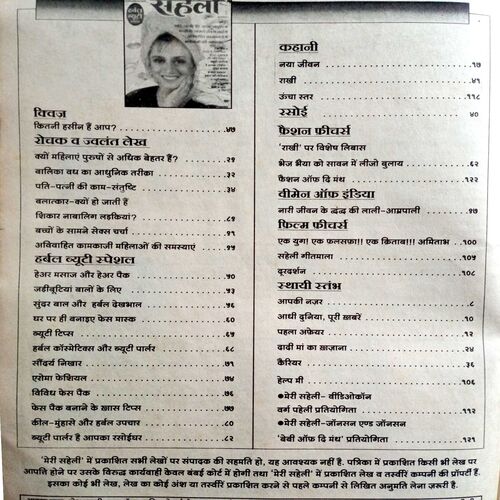 सहेली
हर्बल
ब्यूटी
क्विज़
कितनी हसीन हैं आप? ४७
रोचक व ज्वलंत लेख
क्यों महिलाएं पुरुषों से अधिक बेहतर हैं? २९
बालिका वध का आधुनिक तरीका ३२
पति-पत्नी की काम-संतुष्टि ३४
बलात्कार-क्यों हो जाती हैं
शिकार नाबालिग लड़कियां?
बच्चों के सामने सेक्स चर्चा ९१
अविवाहित कामकाजी महिलाओं की समस्याएं
हर्बल ब्यूटी स्पेशल
हेअर मसाज और हेअर पैक ५०
जड़ीबूटियां बालों के लिए ५३
सुंदर बाल और हर्बल देखभाल ५६
घर पर ही बनाइए फेस मास्क ६०
ब्यूटी टिप्स ६७
हर्बल कॉस्मेटिक्स और ब्यूटी पार्लर ६८
सौंदर्य निखार ७१
एरोमा फेशियल ७४
विविध फेस पैक ७६
फेस पैक बनाने के ख़ास टिप्स ७७
कील-मुंहासे और हर्बल उपचार ८०
ब्यूटी पार्लर है आपका रसोईघर ८२
कहानी
नया जीवन १७
राखी ४१
ऊंचा स्तर ११८
रसोई ४०
फ़ैशन फीचर्स
'राखी' पर विशेष लिबास
भेज भैया को सावन में लीजो बुलाय ६२
फैशन ऑफ दि मंथ १२२
वीमेन ऑफ इंडिया
नारी जीवन के द्वंद्व की लाली-आम्रपाली ९७
फिल्म फीचर्स
एक युग! एक फलसफ़ा!! एक क़िताब!!! अमिताभ १००
सहेली गीतमाला १०५
दूरदर्शन १०८
स्थायी स्तंभ
आपकी नज़र ८
आधी दुनिया, पूरी ख़बरें १०
पहला अफ़ेयर १२
दादी मां का ख़ज़ाना २४
कैरियर ३६
हेल्प मी १०६
●मेरी सहेली- वीडिओकॉन
वर्ग पहेली प्रतियोगिता ११२
●मेरी सहेली-जॉनसन एण्ड जॉनसन
'बेबी ऑफ दि मंथ' प्रतियोगिता १२१
'मेरी सहेली' में प्रकाशित सभी लेखों पर संपादक की सहमति हो, यह आवश्यक नहीं है. पत्रिका में प्रकाशित किसी भी लेख पर
आपत्ति होने पर उसके विरुद्ध कार्यवाही केवल बंबई कोर्ट में होगी तथा 'मेरी सहेली' में प्रकाशित लेख व तस्वीरें कम्पनी की प्रॉपर्टी हैं.
इसका कोई भी लेख, लेख का कोई अंश या तस्वीरें प्रकाशित करने से पहले कम्पनी से लिखित अनुमति लेना ज़रूरी है.